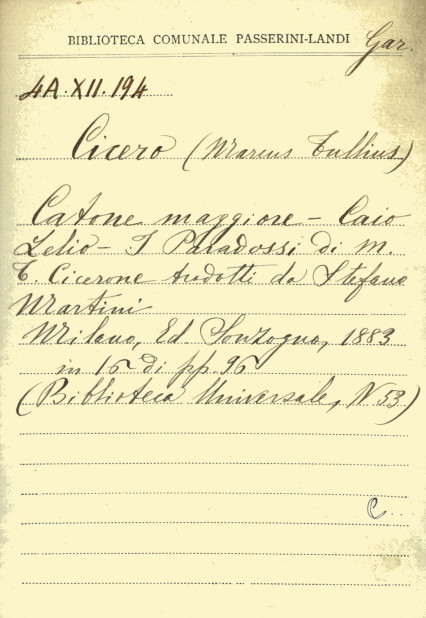 BIBLIOTECA COMUNALE PASSERINI-LANDI Gar.
4A.XII.194
Cicero (Marcus Tullius)
Catone maggiore - Caio
Lelio - I Paradossi di M.
T. Cicerone tradotti da Stefano
Martini
Milano, Ed. Sonzogno, 1883
in 16 di pp. 96
(Biblioteca Universale, N 53)
C..